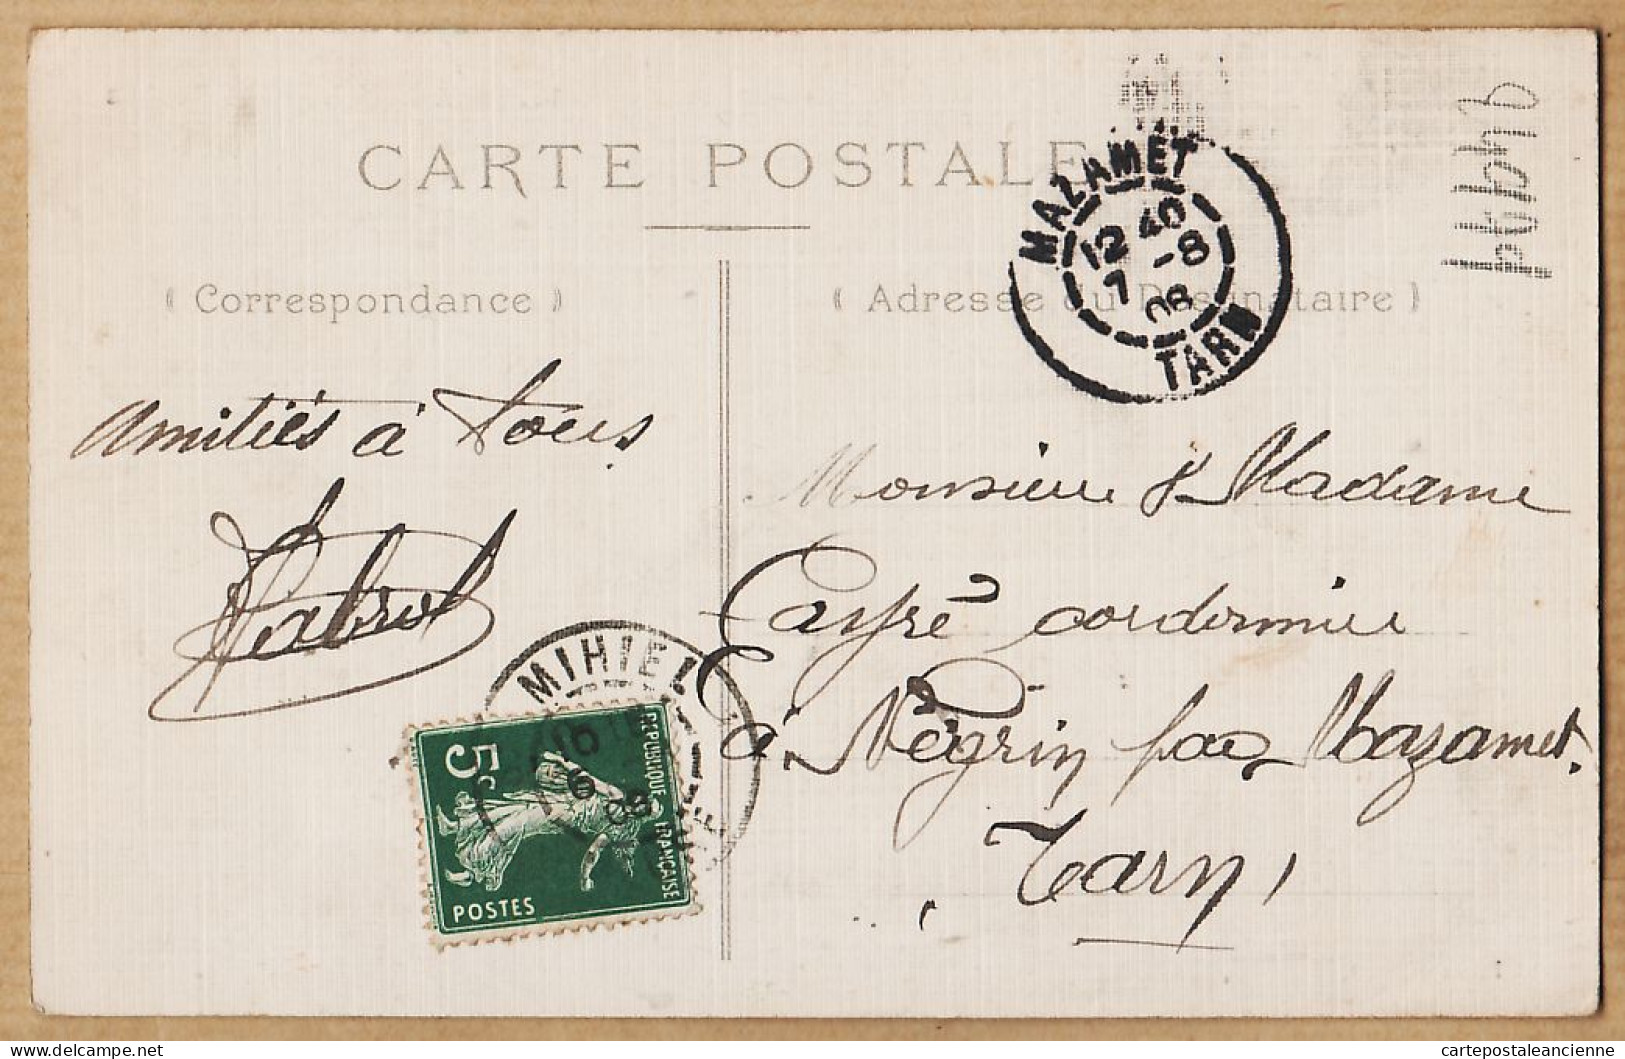 CARTE POSTALE
MAZAMET
12 40
7 -8
08
TARN
( Correspondance )
( Adresse du Destinataire )
Amitiés à tous
Cabrol
Monsieur & Madame
Cayré cordonnier
à Négrin par Mazamet.
Tarn
MIHIEL
6
08
MEUSE
5c
REPUBLIQUE FRANÇAISE
POSTES
delcampe.net
cartepostaleancienne